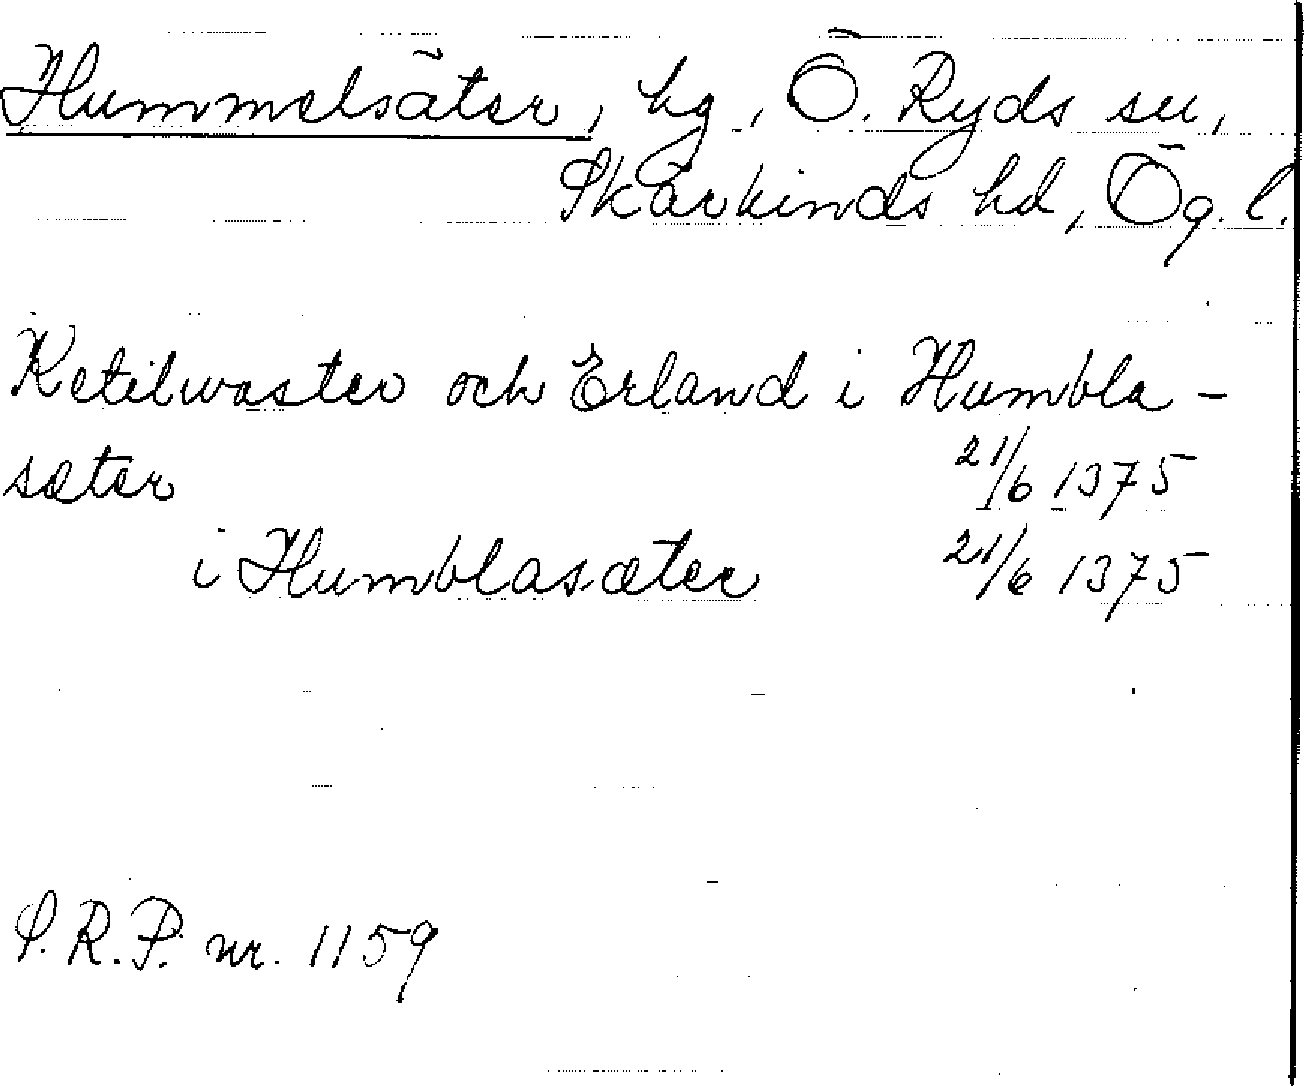 Hummelsäter, hg, Ö. Ryds sn,
Skärkinds hd, Ög. l.
Ketilwaster och Erland i Humbla-
sæter 21/6 1375
i Humblasæter 21/6 1375
S.R.P. nr. 1159